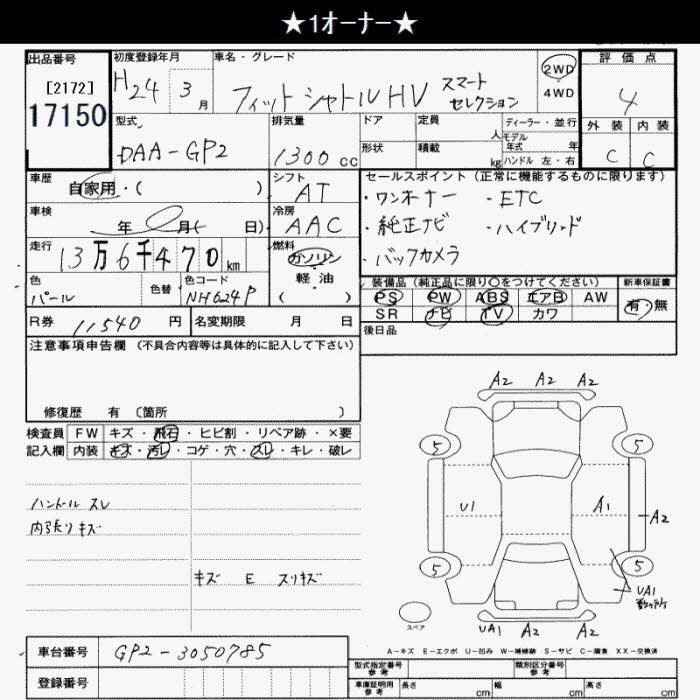 ★1オーナー★
出品番号
[2172]
17150
初度登録年月
H24 3月
車名・グレード
フィットシャトルHV スマート
セレクション
2WD
4WD
評価点
4
外装 内装
C C
型式
DAA-GP2
排気量
1300cc
ドア
定員 人
形状
積載 kg
ディーラー・並行
モデル年式 年
ハンドル 左・右
車歴
自家用・( )
シフト
AT
セールスポイント(正常に機能するものに限ります)
・ワンオーナー ・ETC
・純正ナビ ・ハイブリッド
・バックカメラ
車検
年 月( 日)
冷房
AAC
走行
13万6千470km
燃料
ガソリン
軽油
( )
色
パール
色替
色コード
NH624P
装備品(純正品に限り○をつけてください)
新車保証書
PS PW ABS エアB AW
SR ナビ TV カワ
有・無
R券 11540円
名変期限 月 日
後日品
注意事項申告欄(不具合内容等は具体的に記入して下さい)
修復歴 有〔箇所 〕
検査員 FW キズ・飛石・ヒビ割・リペア跡・×要
記入欄 内装 キズ・汚レ・コゲ・穴・スレ・キレ・破レ
ハンドル スレ
内張りキズ
キズ E スリキズ
A2 A2 A2
5 5
U1 A1 A2
5 5
UA1
UA1 A2 A2
スペア
A-キズ E-エクボ U-凹み W-補修跡 S-サビ C-腐食 XX-交換済
車台番号 GP2-3050785
登録番号
型式指定番号
参考
類別区分番号
参考
車庫証明用
参考
長さ cm 幅 cm 高さ cm